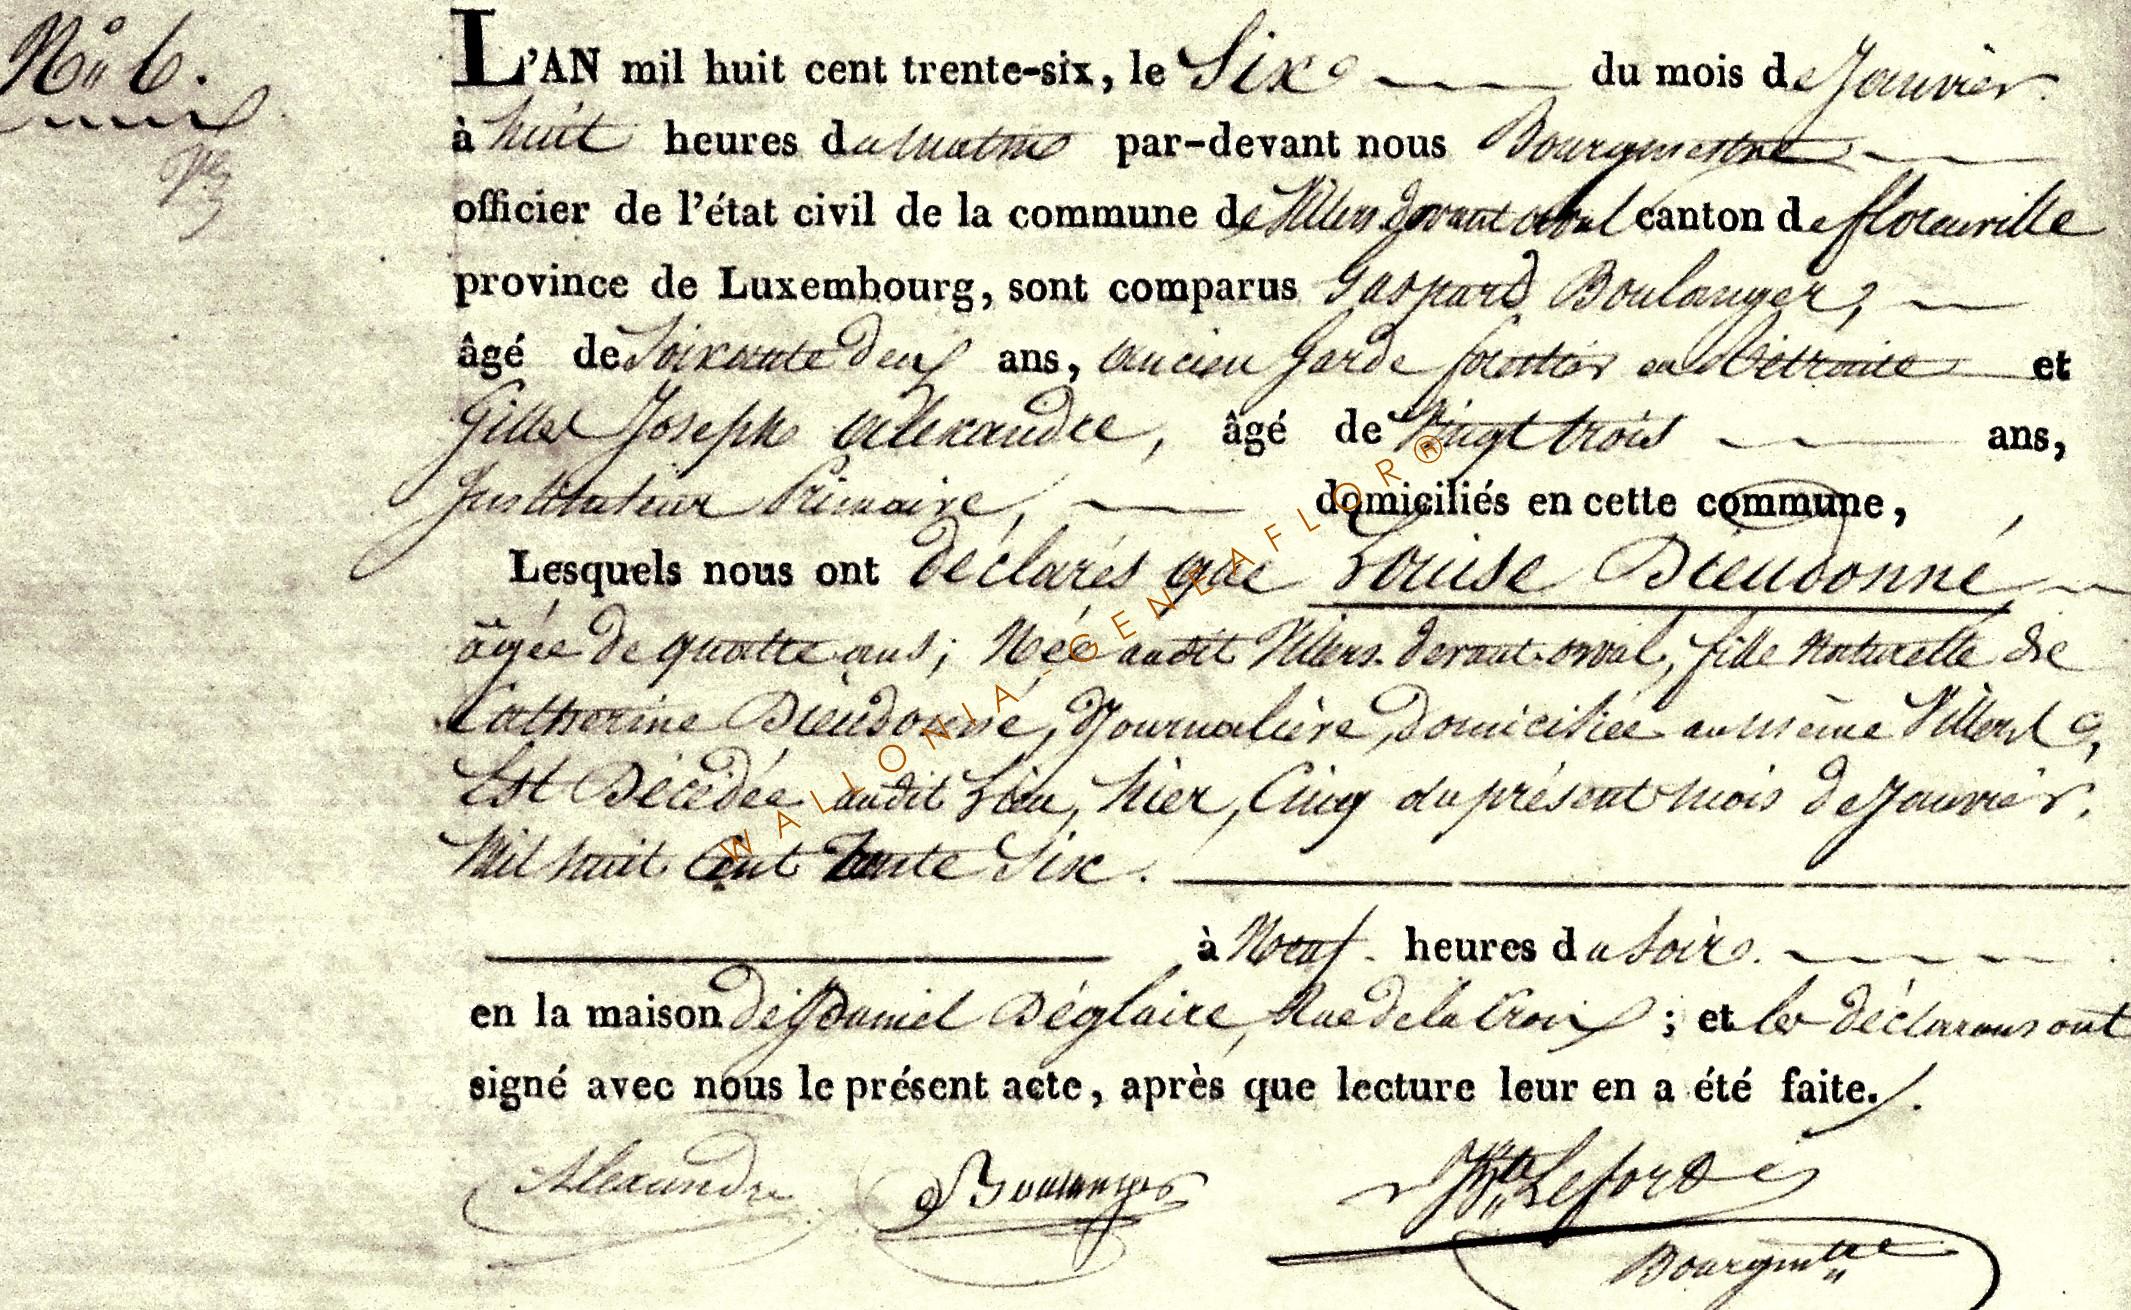 N° 6.
L'AN mil huit cent trente-six, le Six du mois de Janvier
à huit heures du matin par-devant nous Bourgmestre
officier de l'état civil de la commune de Villers devant orval canton de florenville
province de Luxembourg, sont comparus Gaspard Boulanger,
âgé de Soixante deux ans, ancien Garde forêstier en Rétraite et
Gilles Joseph Alexandre, âgé de Vingt trois ans,
Instituteur Primaire, domiciliés en cette commune,
Lesquels nous ont déclarés que Louise Dieudonné
âgée de quatre ans; Née audit Villers-devant-orval, fille Naturelle de
Catherine Dieudonné, Journalière, domiciliée au même Villers,
Est Décédée audit Lieu, hier, Cinq du présent mois de Janvier,
Mil huit Cent trente Six.
à Neuf heures du soir.
en la maison de Daniel Déglaire, Rue de la Croix ; et les déclarans ont
signé avec nous le présent acte, après que lecture leur en a été faite.
Alexandre Boulanger Lefort
Bourgmtre
WALLONIA-GENEAFLOR®